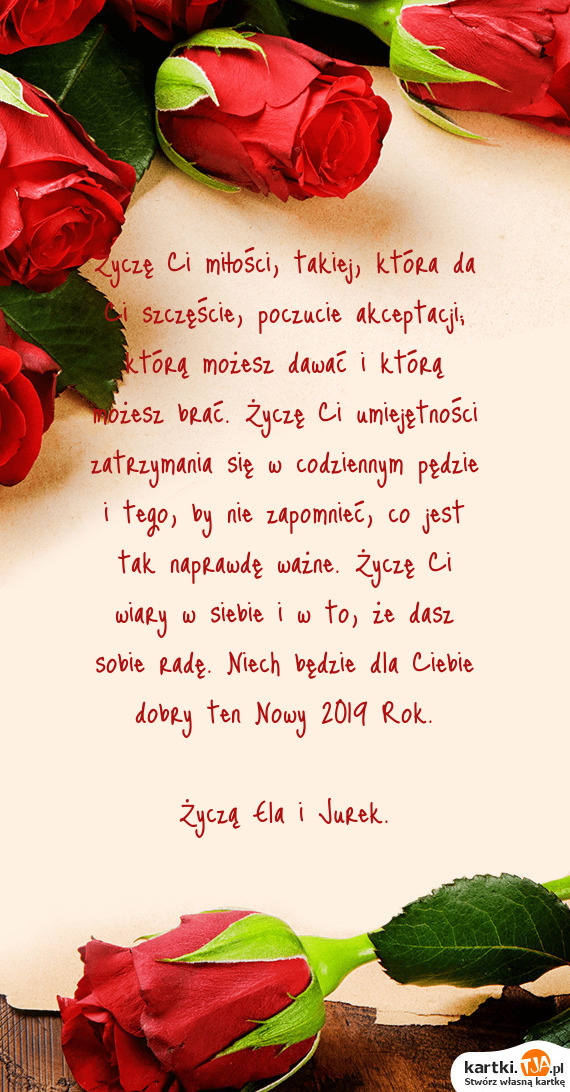 Życzę Ci miłości, takiej, która da
Ci szczęście, poczucie akceptacji;
którą możesz dawać i którą
możesz brać. Życzę Ci umiejętności
zatrzymania się w codziennym pędzie
i tego, by nie zapomnieć, co jest
tak naprawdę ważne. Życzę Ci
wiary w siebie i w to, że dasz
sobie radę. Niech będzie dla Ciebie
dobry ten Nowy 2019 Rok.
Życzą Ela i Jurek.
kartki.TJA.pl
Stwórz własną kartkę